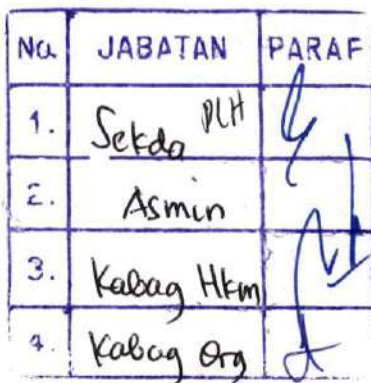 No. JABATAN PARAF
1. Sekda PLH
2. Asmin
3. Kabag Hkm
4. Kabag Org